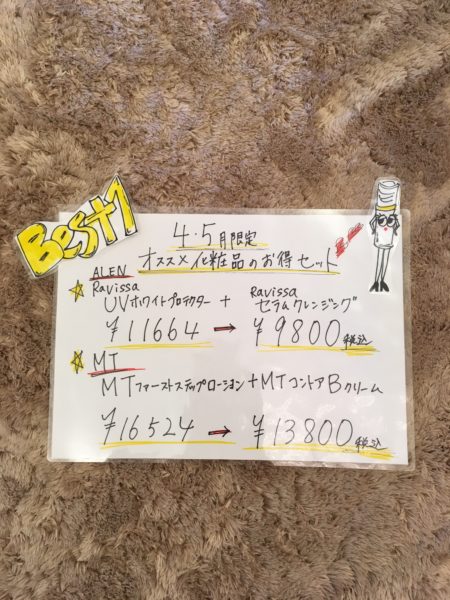 Best1
4・5月限定
オススメ化粧品のお得セット
ALEN
☆ Ravissa
UVホワイトプロテクター + Ravissa セラムクレンジング
¥11664 → ¥9800税込
☆ MT
MTファーストステップローション+MTコントアBクリーム
¥16524 → ¥13800税込